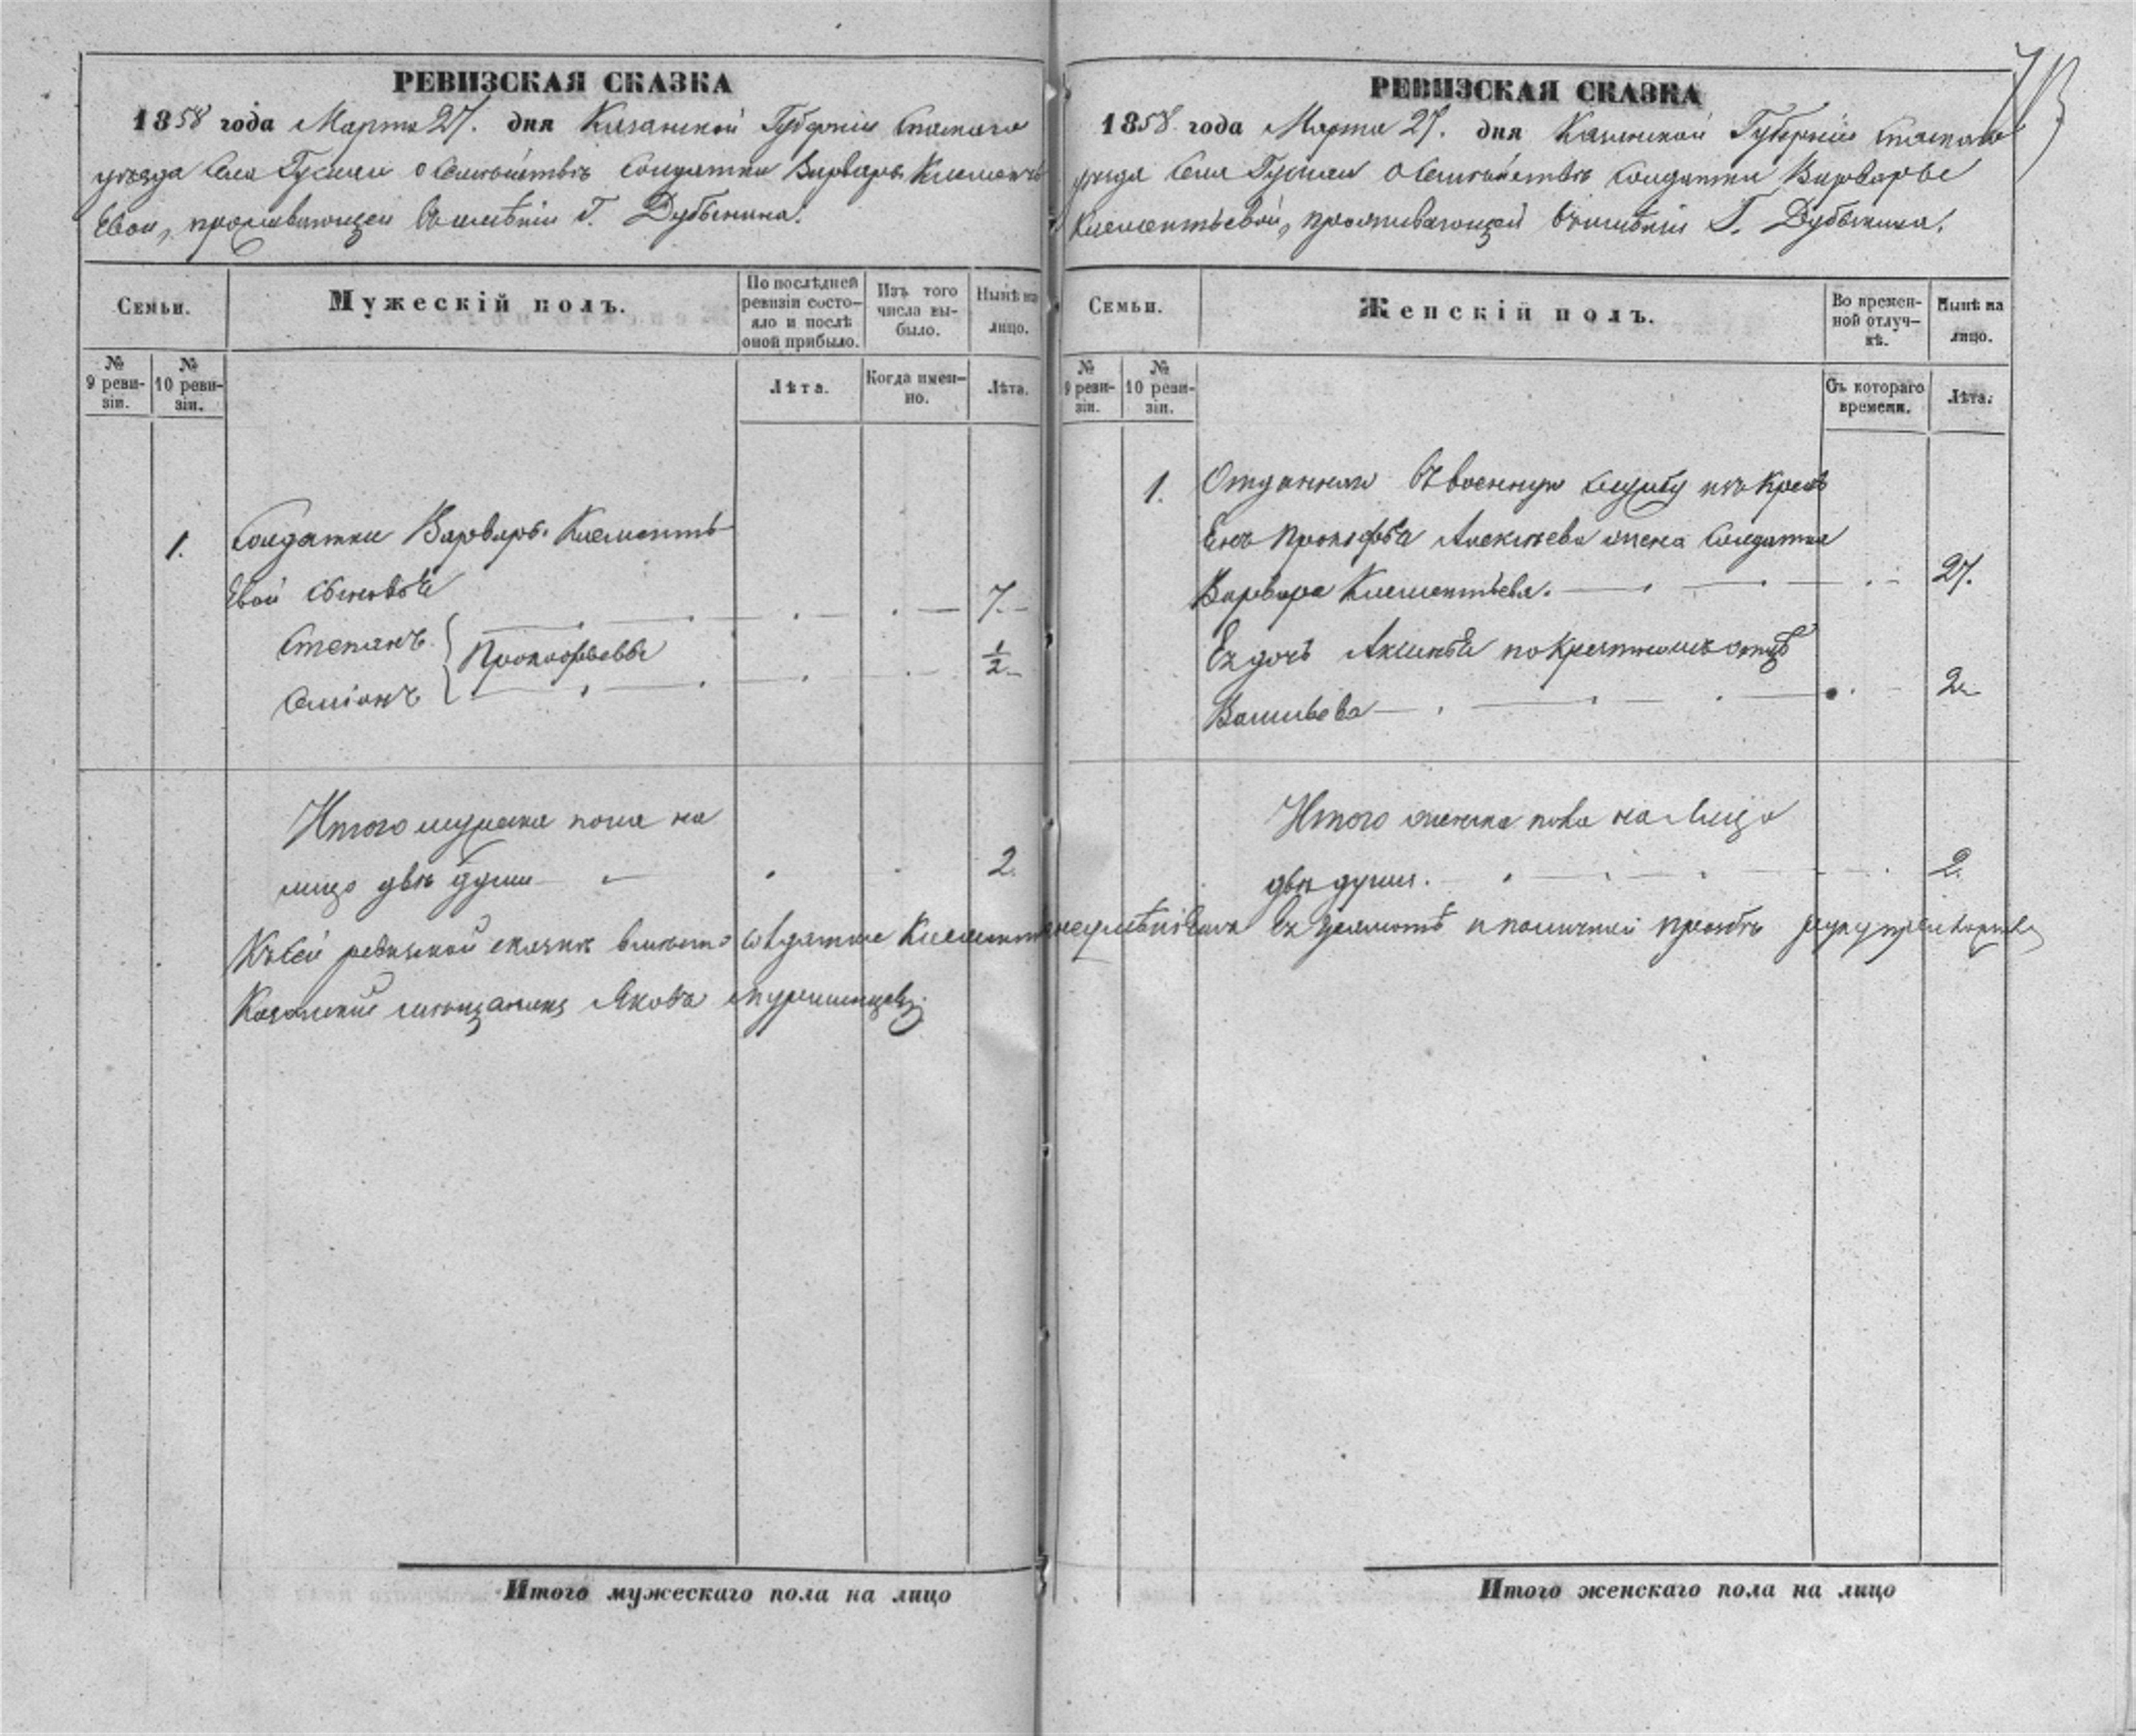 РЕВИЗСКАЯ СКАЗКА
1858 года Марта 27. дня Казанской Губерніи Спаскаго
уѣзда Села Гусихи о Семѣйствѣ Солдатки Варвары Клементь
евой, проживающей въ имѣніи Г. Дубынина.
Семьи.
Мужескій полъ.
По послѣдней ревизіи состояло и послѣ оной прибыло.
Изъ того числа выбыло.
Нынѣ на лицо.
№ 9 ревизіи.
№ 10 ревизіи.
Лѣта.
Когда именно.
Лѣта.
1. Солдатки Варвары Клементь
евой сыновья
7.
Степанъ
Прокофьевы
1/2
Симіонъ
Итого мужска пола на
лицо двѣ души 2.
РЕВИЗСКАЯ СКАЗКА
1858 года Марта 27. дня Казанской Губерніи Спаскаго
уѣзда Села Гусихи о Семѣйствѣ Солдатки Варвары
Клементьевой, проживающей въ имѣніи Г. Дубынина.
73
Семьи.
Женскій полъ.
Во временной отлучкѣ.
Нынѣ на лицо.
№ 9 ревизіи.
№ 10 ревизіи.
Съ котораго времени.
Лѣта.
1. Отданнаго въ военную службу изъ Крест
Прокофья Алексѣева жена Солдатка
Варвара Клементьева. 27.
Ея дочь Аксинья по Крестному отцу
Васильева 2.
Итого женска пола на Лицо
двѣ души. 2.
Къ сей ревизской сказкѣ вмѣсто солдатки Клементьевой ея грамотѣ и по личной прозьбѣ руку приложилъ
Казанской мѣщанинъ Яковъ
Итого мужескаго пола на лицо
Итого женскаго пола на лицо